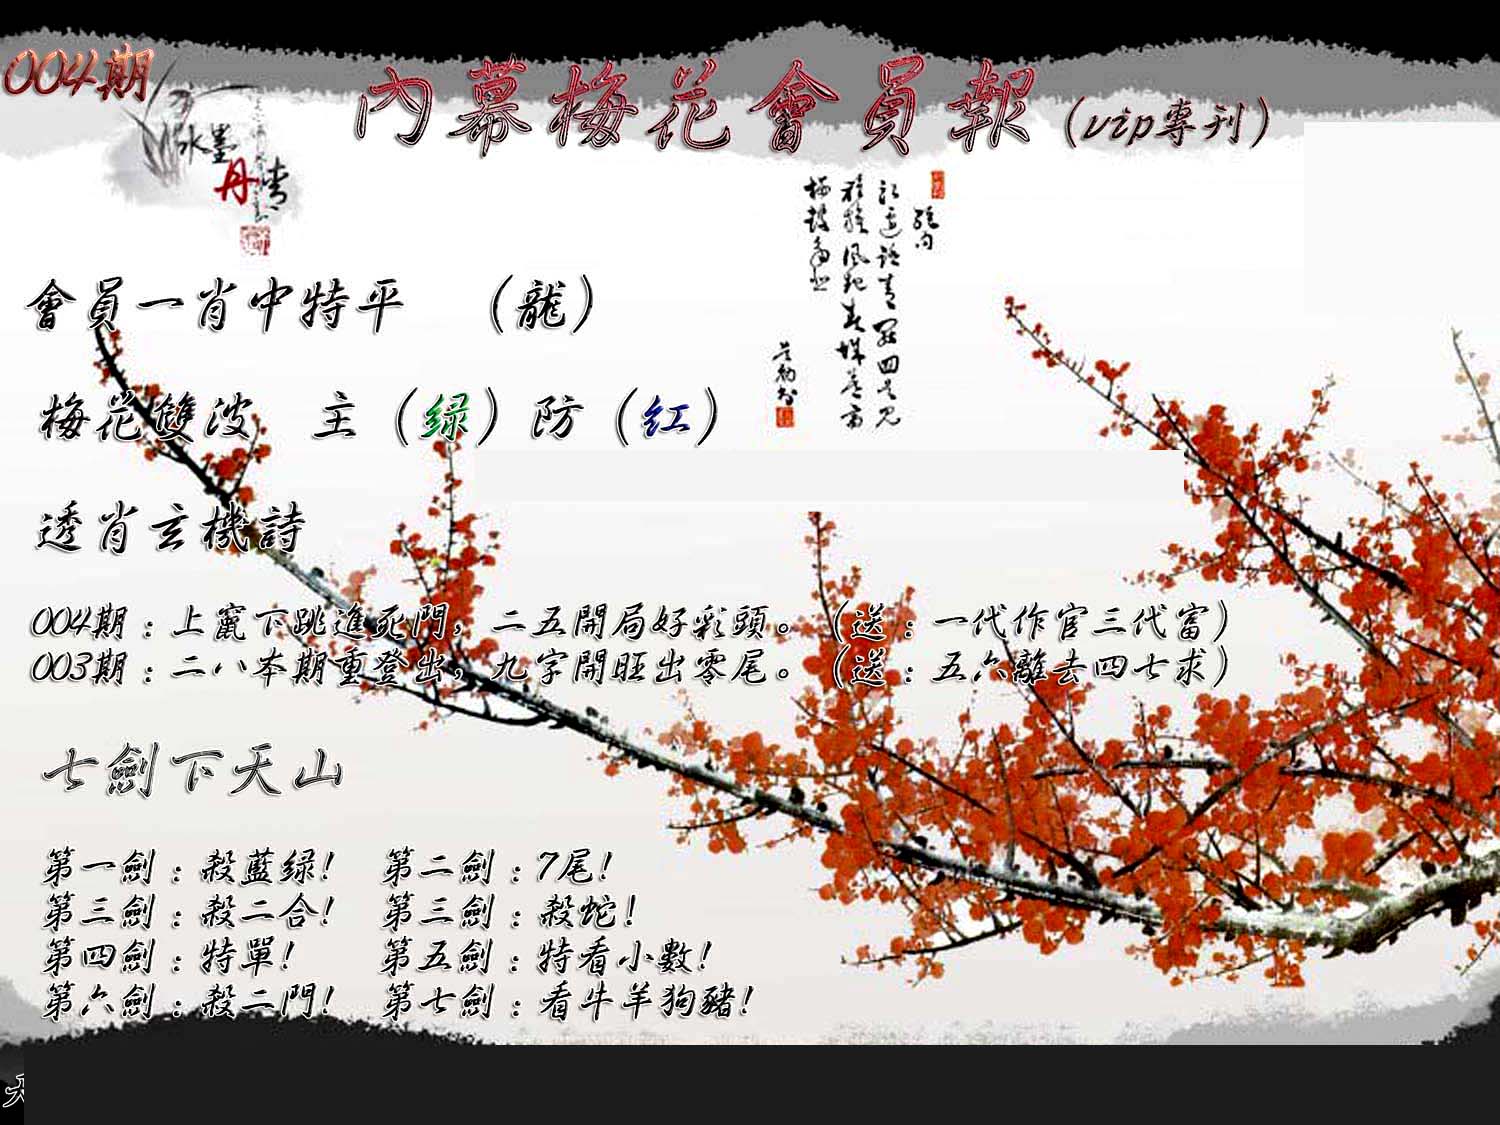 004期
內幕梅花會員報(vip專刊)
水墨
丹青
會員一肖中特平 (龍)
梅花雙波 主(绿)防(红)
透肖玄機詩
004期:上竄下跳進死門,二五開局好彩頭。(送:一代作官三代富)
003期:二八本期重登出,九字開旺出零尾。(送:五六離去四七求)
七劍下天山
第一劍:殺藍绿! 第二劍:7尾!
第三劍:殺二合! 第三劍:殺蛇!
第四劍:特單! 第五劍:特看小數!
第六劍:殺二門! 第七劍:看牛羊狗豬!